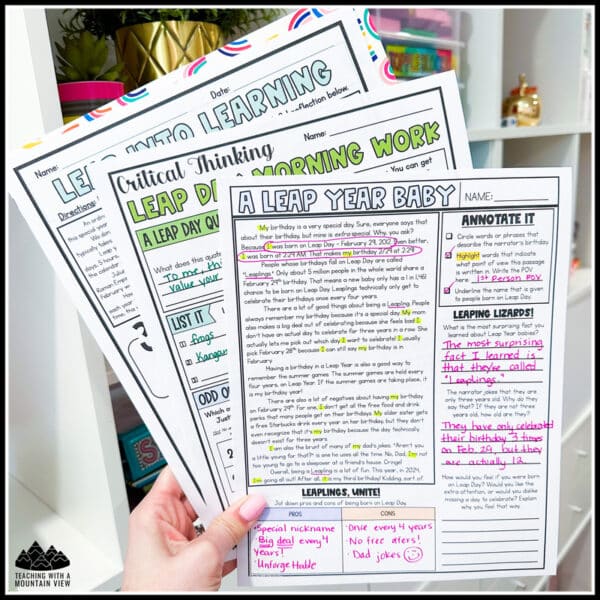 Name:
Date:
LEAP INTO LEARNING
Directions:
reflection below.
Critical Thinking
Name:
LEAP DAY MORNING WORK
You can get
A LEAP DAY QU
What does this quot
To me, th
value your
LIST IT
frogs
Kangar
ODD O
A LEAP YEAR BABY
NAME:
My birthday is a very special day. Sure, everyone says that
about their birthday, but mine is extra special. Why, you ask?
Because I was born on Leap Day - February 29, 2012. Even better,
I was born at 2:29 AM. That makes my birthday 2/29 at 2:29.
People whose birthdays fall on Leap Day are called
"Leaplings." Only about 5 million people in the whole world share a
February 29th birthday. That means a new baby only has a 1 in 1,461
chance to be born on Leap Day. Leaplings technically only get to
celebrate their birthdays once every four years.
There are a lot of good things about being a Leapling. People
always remember my birthday because it's a special day. My mom
also makes a big deal out of celebrating because she feels bad I
don't have an actual day to celebrate for three years in a row. She
actually lets me pick out which day I want to celebrate! I usually
pick February 28th because I can still say my birthday is in
February.
Having a birthday in a Leap Year is also a good way to
remember the summer games. The summer games are held every
four years, on Leap Year. If the summer games are taking place, it
is my birthday year!
There are also a lot of negatives about having my birthday
on February 29th. For one, I don't get all the free food and drink
perks that many people get on their birthdays. My older sister gets
a free Starbucks drink every year on her birthday, but they don't
even recognize that it's my birthday because the day technically
doesn't exist for three years.
I am also the brunt of many of my dad's jokes. "Aren't you
a little young for that?" is one he uses all the time. No, Dad, I'm not
too young to go to a sleepover at a friend's house. Cringe!
Overall, being a Leapling is a lot of fun. This year, in 2024,
I'm going all out! After all, it is my third birthday! Kidding, sort of.
ANNOTATE IT
Circle words or phrases that
describe the narrator's birthday.
Highlight words that indicate
what point of view this passage
is written in. Write the POV
here: 1st Person POV
Underline the name that is given
to people born on Leap Day.
LEAPING LIZARDS!
What is the most surprising fact you
learned about Leap Year Babies?
The most surprising
fact I learned is
that they're called
"Leaplings."
The narrator jokes that they are
only three years old. Why do they
say that? If they are not three
years old, how old are they?
They have only celebrated
their birthday 3 times
on Feb. 29, but they
are actually 12.
How would you feel if you were born
on Leap Day? Would you like the
extra attention, or would you dislike
missing a day to celebrate? Explain
why you feel that way.
LEAPLINGS, UNITE!
Jot down pros and cons of being born on Leap Day.
PROS
CONS
• Special nickname
• Big deal every 4
years!
• Only every 4 years
• No free offers!
• Dad jokes
TEACHING WITH A
MOUNTAIN VIEW